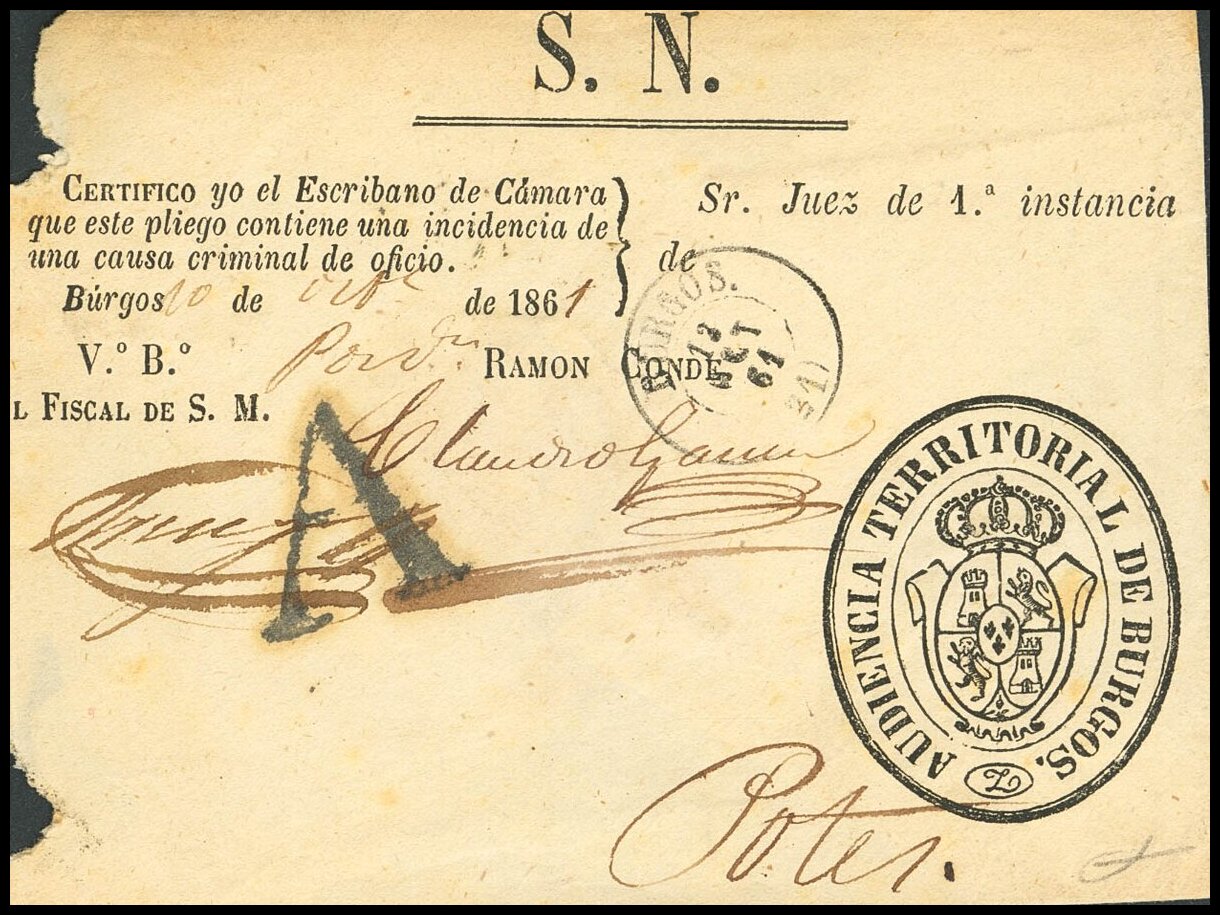 S. N.
CERTIFICO yo el Escribano de Cámara
que este pliego contiene una incidencia de
una causa criminal de oficio.
Búrgos 10 de octe de 1861
V.º B.º
L FISCAL DE S. M.
Por dn RAMON CONDE
Sr. Juez de 1.ª instancia
de
BURGOS.
12
OCT
61
A
AUDIENCIA TERRITORIAL DE BURGOS.
Potes.